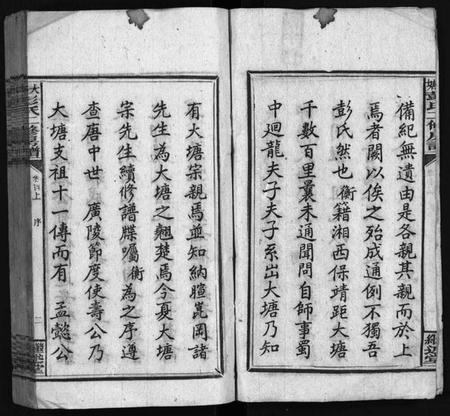 備紀無遺由是各親其親而於上
焉者闕以俟之殆成通例不獨吾
彭氏然也衡籍湘西保靖距大塘
千數百里曩未通聞問自師事蜀
中迴龍夫子夫子系出大塘乃知
有大塘宗親焉並知納暄崑岡諸
先生為大塘之翹楚焉今夏大塘
宗先生續修譜牒囑衡為之序遵
查唐中世廣陵節度使壽公乃
大塘支祖十一傳而有孟懿公
大彭氏
卷首上
序
二